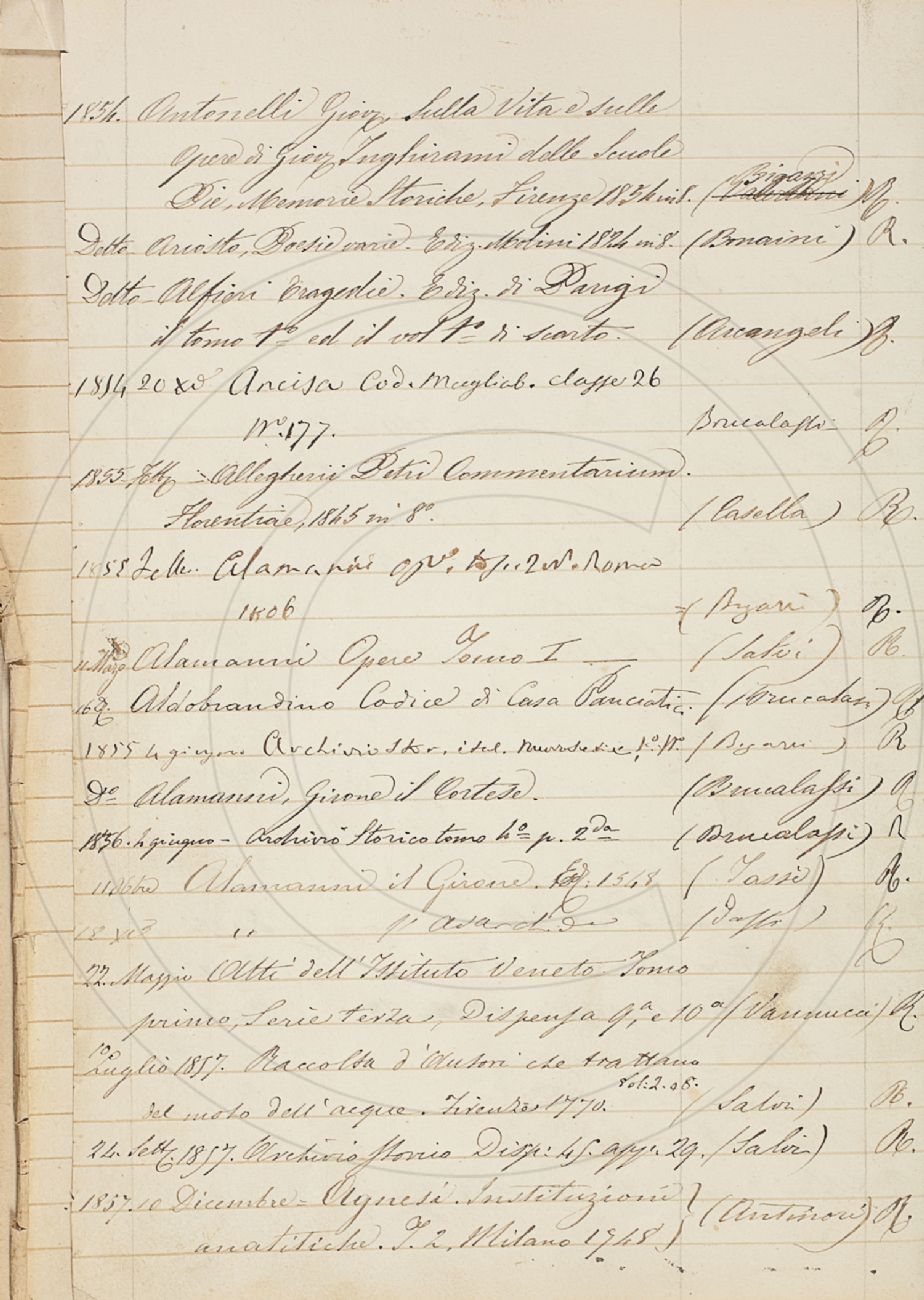 1854. Antonelli Giov. Sulla Vita e sulle
Opere di Giov. Inghirami delle Scuole
Pie, Memorie Storiche, Firenze 1854 in 8. (Bigazzi) R.
Detto Ariosto, Poesie varie. Ediz. Molini 1824 in 8. (Bonaini) R.
Detto Alfieri Tragedie. Ediz. di Parigi
il tomo 1º ed il vol 1º di scarto. (Arcangeli) R.
1854 20 Xe Ancisa Cod. Magliab. classe 26
Nº. 177. Brucalassi R
1855 - Allegherii Petri Commentarium.
Florentiae, 1845 in 8º. (Casella) R.
1855 Alamanni 2 Roma
1806 =( Bigazzi ) R.
11 Marzo Alamanni Opere Tomo I — (Salvi) R
16 Aldobrandino Codice di Casa Panciatici. (Brucalassi) R
1855 4 giugno Archivio Stor. ital. nuova serie (Bigazzi) R
Dº Alamanni, Girone il Cortese. (Brucalassi) R
1856. 4 giugno - Archivio Storico tomo 4º p. 2da (Brucalassi) R
11 Alamanni il Girone. 1548 (Tassi) R.
18 Xe " (Tassi) R
22. Maggio Atti dell'Istituto Veneto Tomo
primo, Serie terza, Dispensa 9ª, e 10ª (Vannucci) R.
10 Luglio 1857. Raccolta d'Autori che trattano
del moto dell'acque. Firenze 1770. Vol: 2. 8. (Salvi) R.
24. Sett. 1857. Archivio Storico Disp: 45. app: 29. (Salvi) R.
1857. 10 Dicembre = Agnesi. Instituzioni
analitiche. T. 2, Milano 1748. } (Antinori) R.